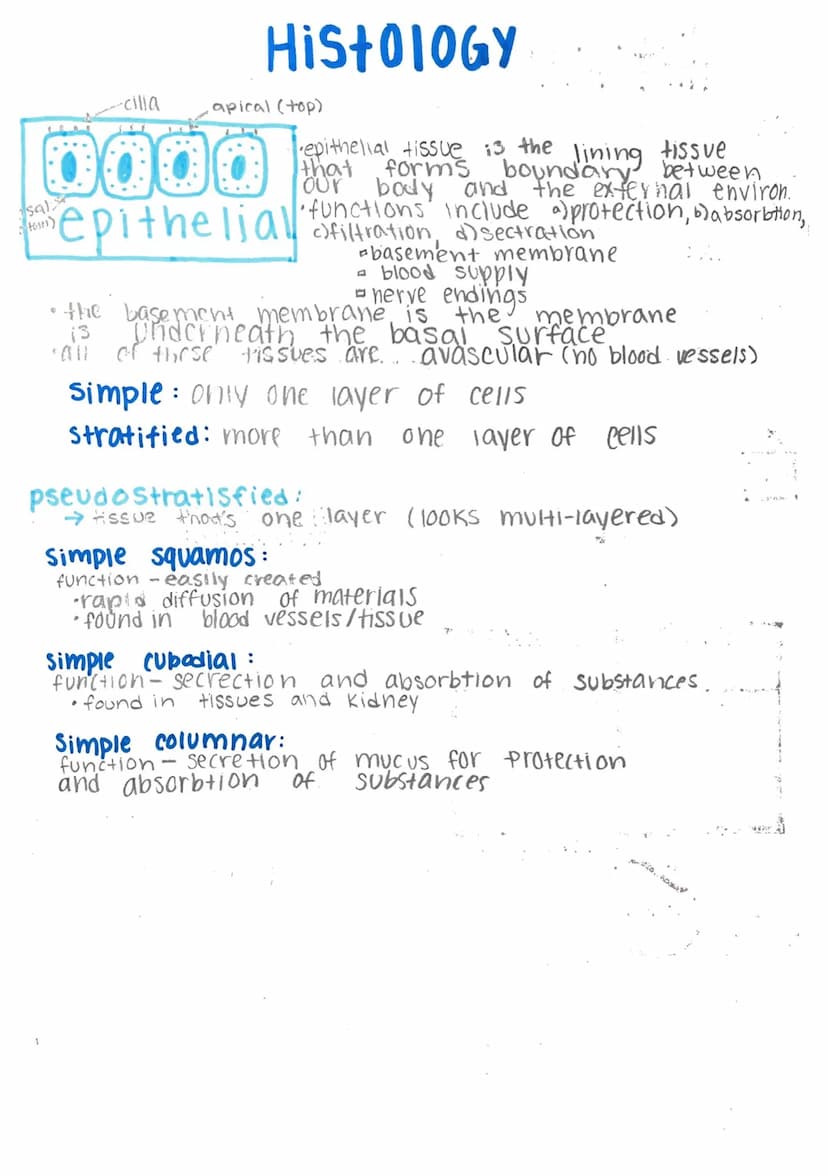 HiStOlOGY
cilia
apical (top)
epithelial
•epithelial tissue is the lining tissue
that forms boundary between
our body and the external environ.
•functions include a)protection, b)absorbtion,
c)filtration, d)sectration
basement membrane
blood supply
nerve endings
•the basement membrane is the membrane
is underneath the basal surface
•all of these tissues are... avascular (no blood vessels)
Simple: only one layer of cells
Stratified: more than one layer of cells
pseudostratisfied:
→ tissue one layer (looks multi-layered)
simple squamos:
function - easily created
•rapid diffusion of materials
•found in blood vessels/tissue
simple cubodial:
function - secrection and absorbtion of substances.
•found in tissues and kidney
Simple columnar:
function - secretion of mucus for protection
and absorbtion of substances